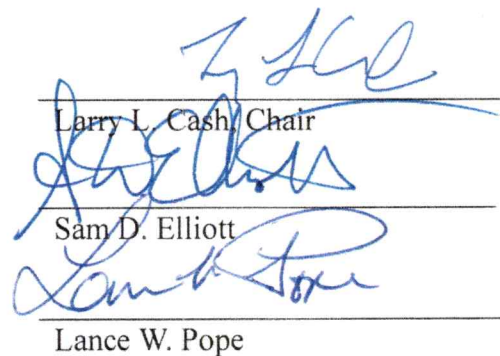 Larry L. Cash, Chair
Sam D. Elliott
Lance W. Pope